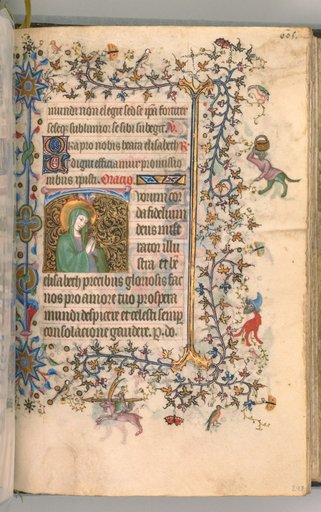 mundi non elegit sed se ip̄am fortiter
seseq; sublimior se sibi subegit. V.
Ora pro nobis beata elisabeth R
Ut digni efficiamur promissio
nibus xpisti. Oracio
uorum cor
da fidelium
deus mise
rator illu
stra et be
elisabeth precibus gloriosis fac
nos pro amore tuo prospera
mundi despicere et celesti semp
consolacione gaudere. P. do